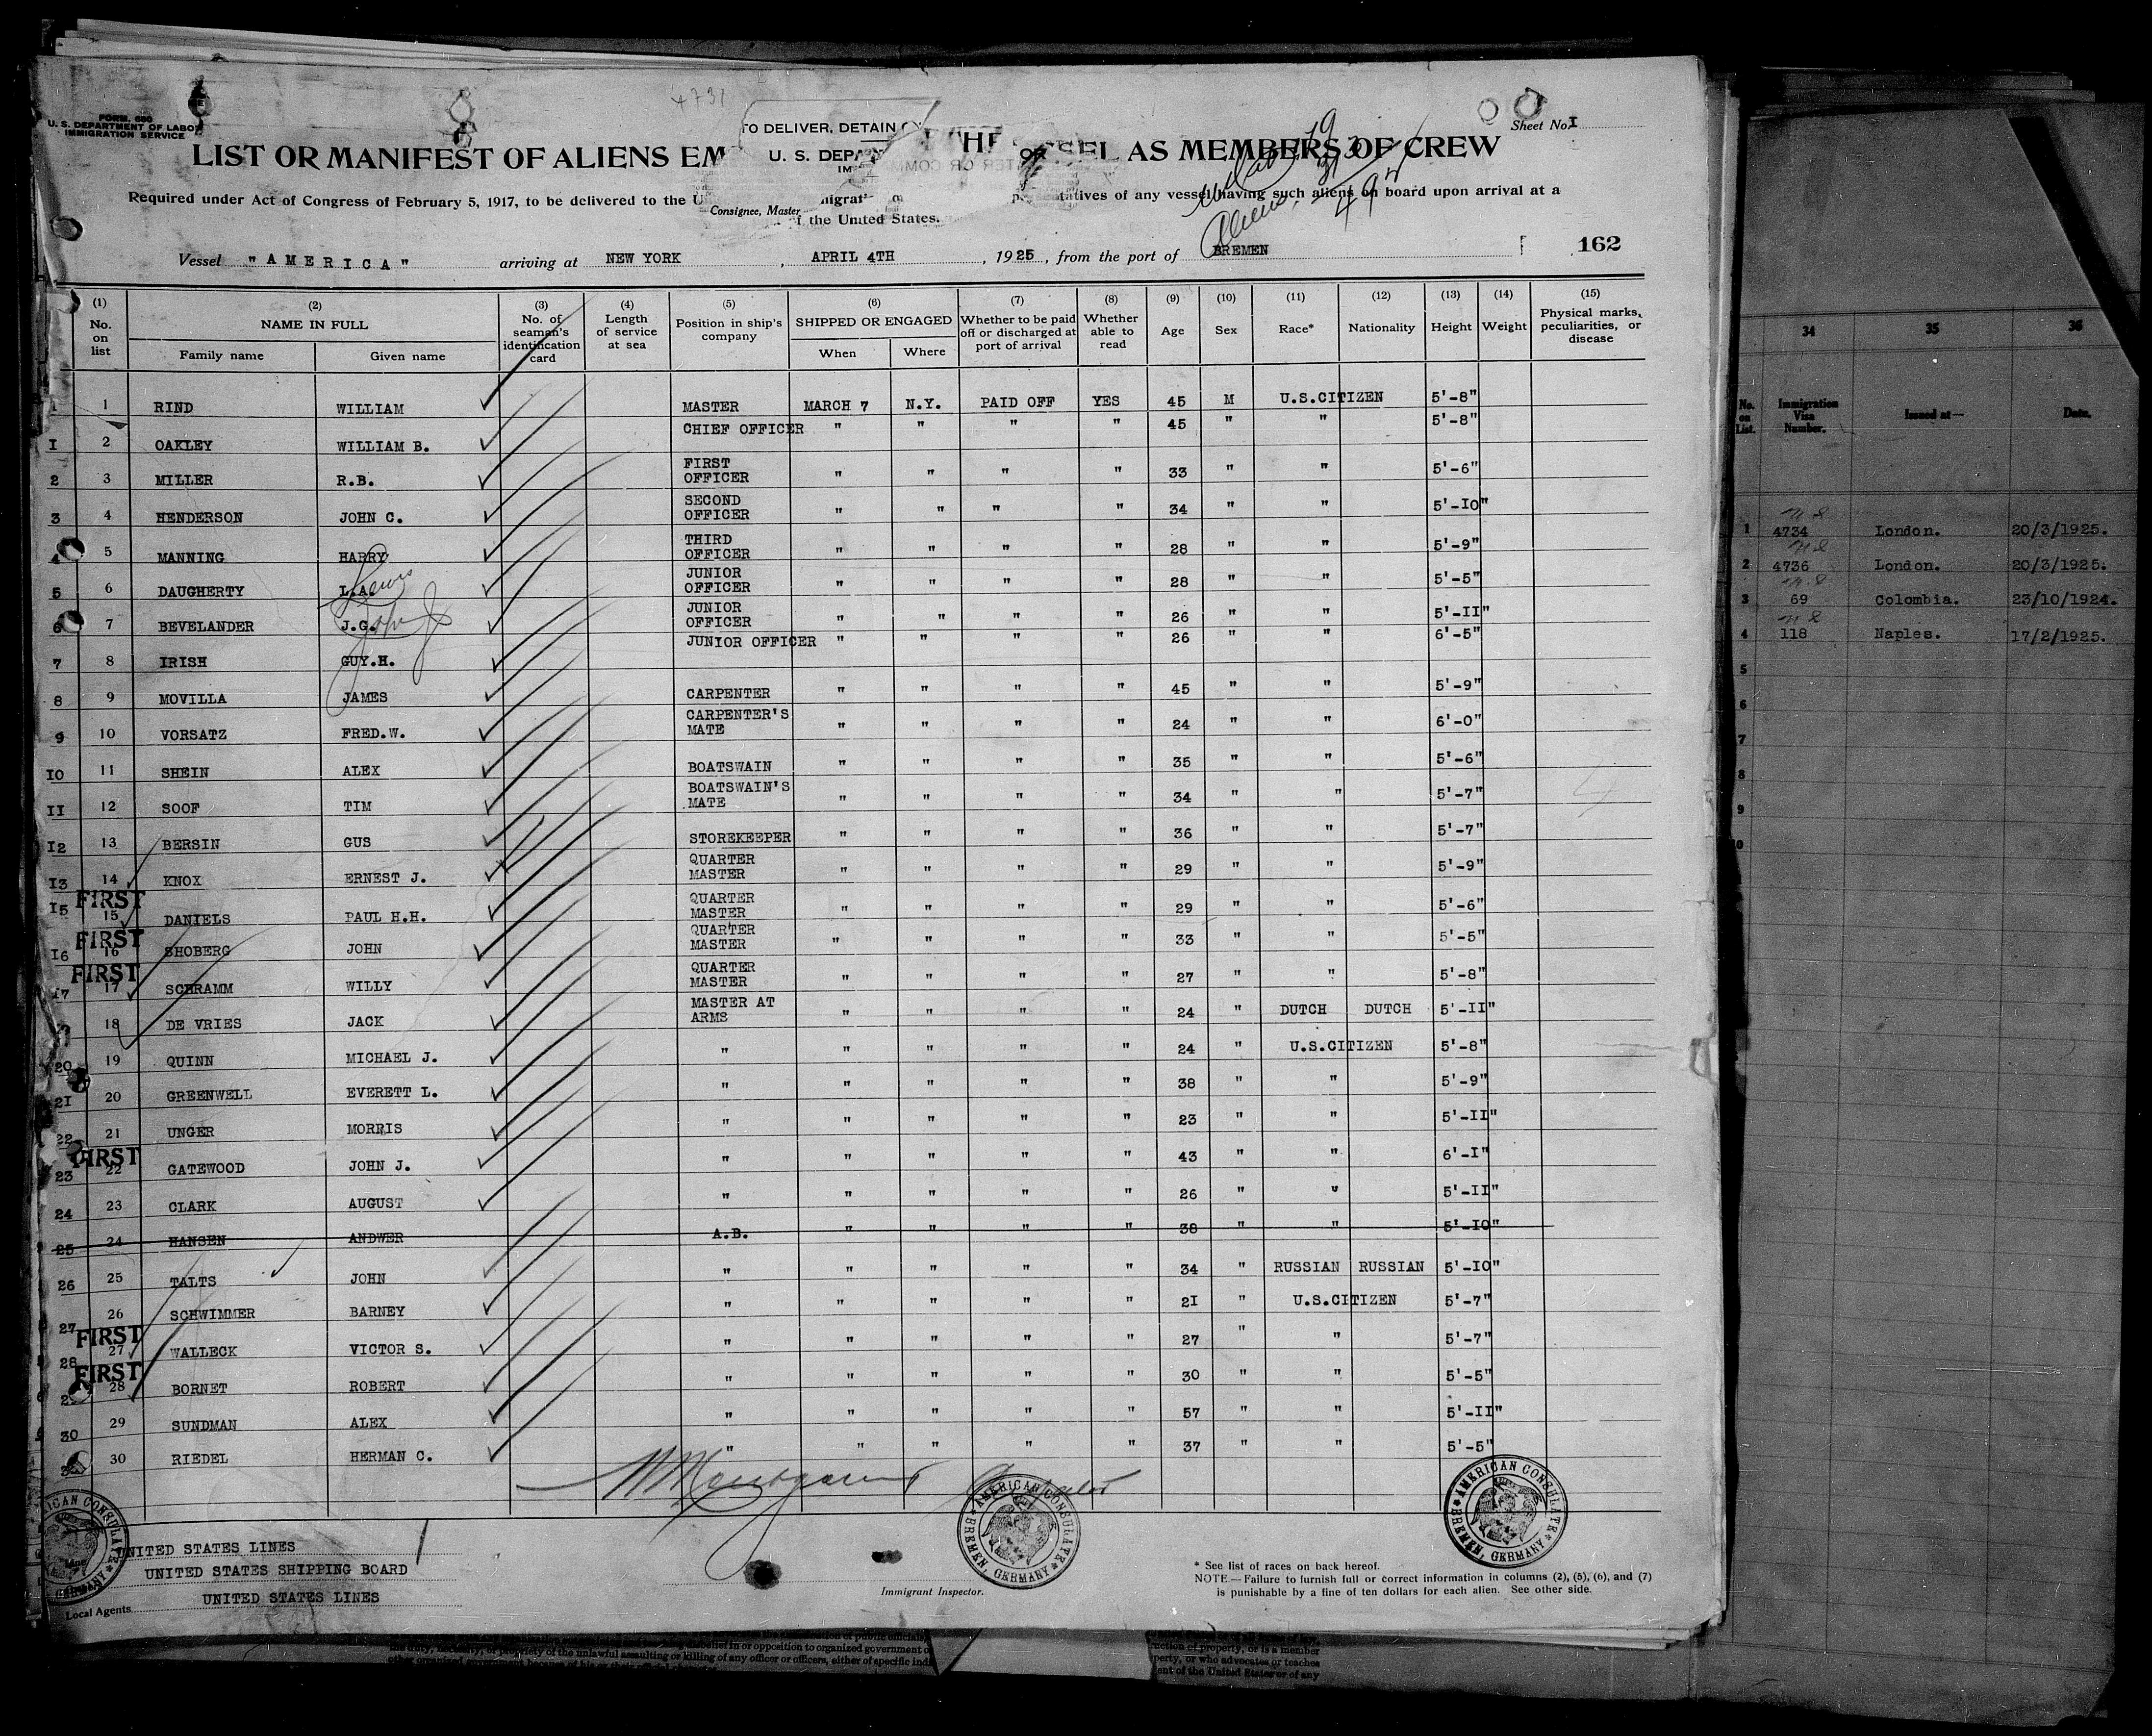 4731
FORM 680
U. S. DEPARTMENT OF LABOR
IMMIGRATION SERVICE
Sheet No. I
TO DELIVER, DETAIN
U. S. DEPA
LIST OR MANIFEST OF ALIENS EM THE SEL AS MEMBERS OF CREW
Required under Act of Congress of February 5, 1917, to be delivered to the U migrat tatives of any vessel having such aliens on board upon arrival at a
Consignee, Master
f the United States.
Vessel "AMERICA" arriving at NEW YORK, APRIL 4TH, 1925, from the port of BREMEN
162
(1) (2) (3) (4) (5) (6) (7) (8) (9) (10) (11) (12) (13) (14) (15)
No. on list NAME IN FULL Family name Given name No. of seaman's identification card Length of service at sea Position in ship's company SHIPPED OR ENGAGED When Where Whether to be paid off or discharged at port of arrival Whether able to read Age Sex Race* Nationality Height Weight Physical marks, peculiarities, or disease
1 1 RIND WILLIAM MASTER MARCH 7 N.Y. PAID OFF YES 45 M U.S.CITIZEN 5'-8"
I 2 OAKLEY WILLIAM B. CHIEF OFFICER " " " " 45 " " 5'-8"
2 3 MILLER R.B. FIRST OFFICER " " " " 33 " " 5'-6"
3 4 HENDERSON JOHN C. SECOND OFFICER " " " " 34 " " 5'-10"
4 5 MANNING HARRY THIRD OFFICER " " " " 28 " " 5'-9"
5 6 DAUGHERTY L.A. Lewis JUNIOR OFFICER " " " " 28 " " 5'-5"
6 7 BEVELANDER J.G. John JUNIOR OFFICER " " " " 26 " " 5'-II"
7 8 IRISH GUY.H. JUNIOR OFFICER " " " " 26 " " 6'-5"
8 9 MOVILLA JAMES CARPENTER " " " " 45 " " 5'-9"
9 10 VORSATZ FRED.W. CARPENTER'S MATE " " " " 24 " " 6'-0"
IO 11 SHEIN ALEX BOATSWAIN " " " " 35 " " 5'-6"
II 12 SOOF TIM BOATSWAIN'S MATE " " " " 34 " " 5'-7"
I2 13 BERSIN GUS STOREKEEPER " " " " 36 " " 5'-7"
I3 14 KNOX ERNEST J. QUARTER MASTER " " " " 29 " " 5'-9"
I5 FIRST 15 DANIELS PAUL H.H. QUARTER MASTER " " " " 29 " " 5'-6"
I6 FIRST 16 SHOBERG JOHN QUARTER MASTER " " " " 33 " " 5'-5"
I7 FIRST 17 SCHRAMM WILLY QUARTER MASTER " " " " 27 " " 5'-8"
18 DE VRIES JACK MASTER AT ARMS " " " " 24 " DUTCH DUTCH 5'-II"
19 QUINN MICHAEL J. " " " " " 24 " U.S.CITIZEN 5'-8"
20 20 GREENWELL EVERETT L. " " " " " 38 " " 5'-9"
2I 21 UNGER MORRIS " " " " " 23 " " 5'-II"
22 FIRST 22 GATEWOOD JOHN J. " " " " " 43 " " 6'-I"
23 23 CLARK AUGUST " " " " " 26 " " 5'-II"
24
25 24 HANSEN ANDWER A.B. " " " " 38 " " 5'-IO"
26 25 TALTS JOHN " " " " " 34 " RUSSIAN RUSSIAN 5'-IO"
26 SCHWIMMER BARNEY " " " " " 2I " U.S.CITIZEN 5'-7"
27 FIRST 27 WALLECK VICTOR S. " " " " " 27 " " 5'-7"
28 FIRST 28 BORNET ROBERT " " " " " 30 " " 5'-5"
29 SUNDMAN ALEX " " " " " 57 " " 5'-II"
30 30 RIEDEL HERMAN C. " " " " " 37 " " 5'-5"
AMERICAN CONSULATE BREMEN, GERMANY
AMERICAN CONSULATE BREMEN, GERMANY
ICAN CONSULATE GERMANY
UNITED STATES LINES
UNITED STATES SHIPPING BOARD
Local Agents UNITED STATES LINES
Immigrant Inspector.
* See list of races on back hereof.
NOTE.—Failure to furnish full or correct information in columns (2), (5), (6), and (7)
is punishable by a fine of ten dollars for each alien. See other side.
34 35 36
No. on List. Immigration Visa Number. Issued at— Date.
1 4734 London. 20/3/1925.
2 4736 London. 20/3/1925.
3 69 Colombia. 23/10/1924.
4 118 Naples. 17/2/1925.
5
6
7
8
9
the unlawful assaulting or killing of any officer or officers, either of specific ind
ruction of property, or is a member
perty, or who advocates or teaches
ent of the United States or of any